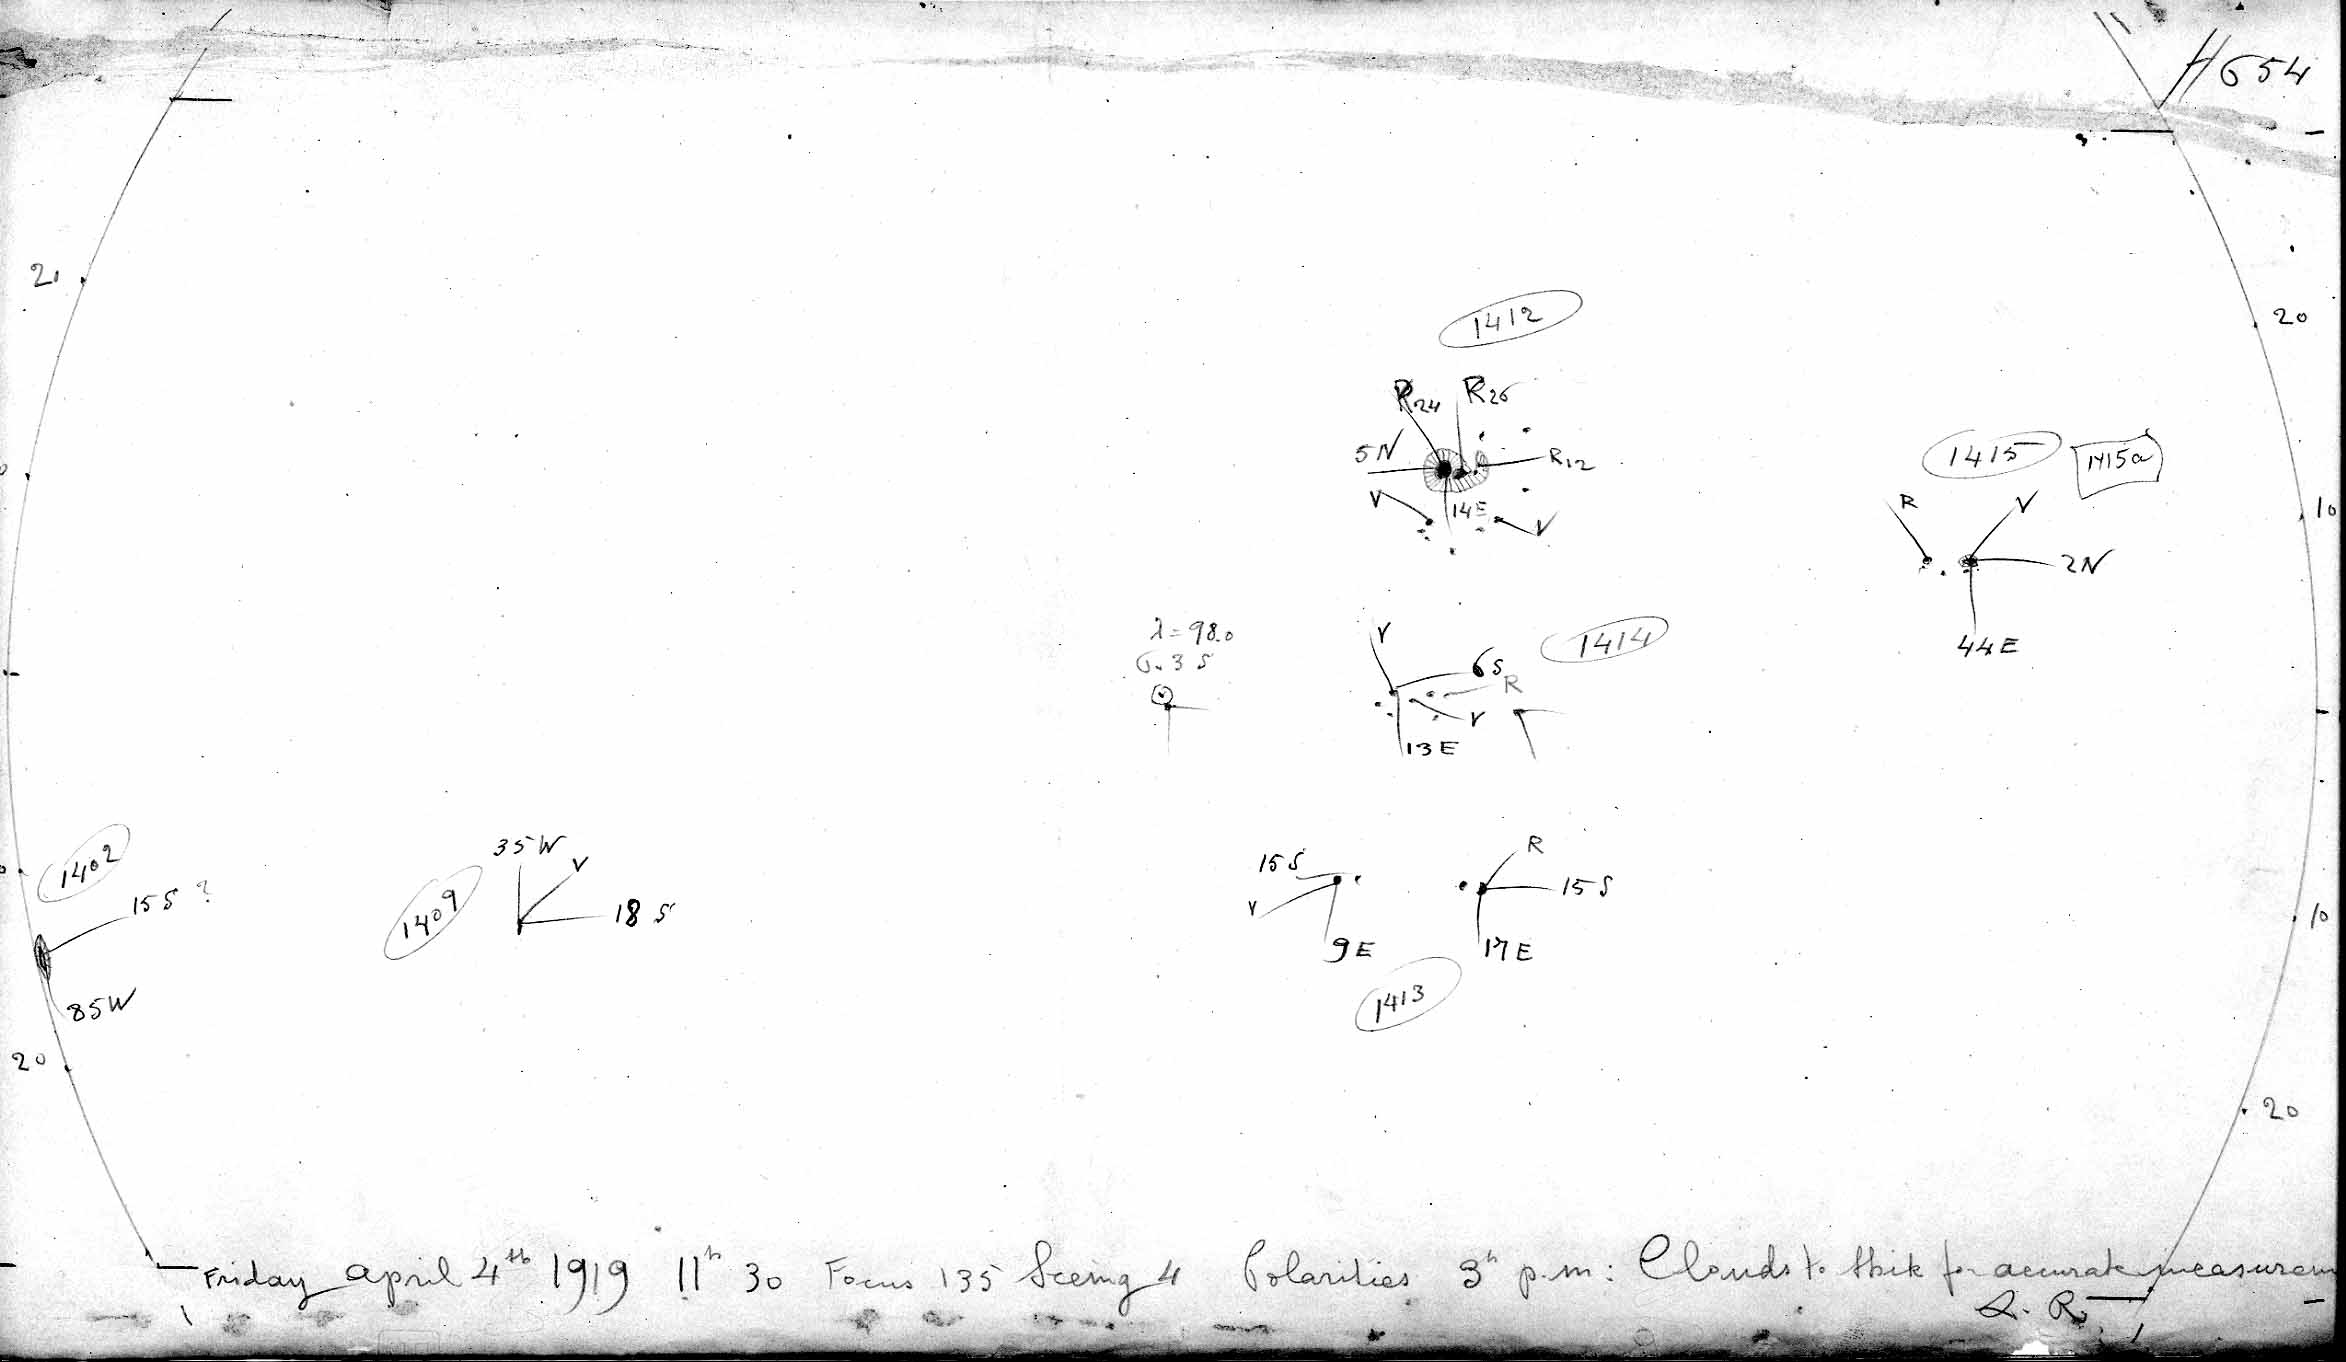 H654
21
20
1412
R24 R26
5N
R12
V
14E
V
1415
1415a
10
R
V
2N
44E
λ=98.0
3 S
V
6S
1414
R
V
13E
1402
15S ?
85W
35W
V
1409
18 S
15S
V
9E
R
15 S
17E
1413
10
20
20
Friday april 4th 1919 11h 30 Focus 135 Seeing 4 Polarities 3h p.m: Clouds to thik for accurate measurem
R.